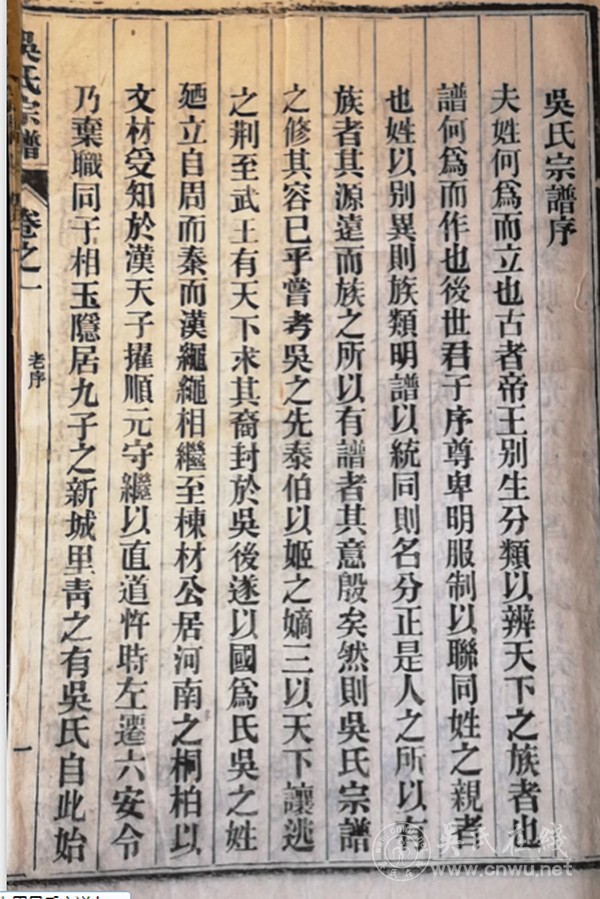 吳氏宗譜序
夫姓何爲而立也古者帝王别生分類以辨天下之族者也
譜何爲而作也後世君子序尊卑明服制以聯同姓之親者
也姓以别異則族類明譜以統同則名分正是人之所以有
族者其源遠而族之所以有譜者其意殷矣然則吳氏宗譜
之修其容已乎嘗考吳之先泰伯以姬之嫡三以天下讓逃
之荆至武王有天下求其裔封於吳後遂以國爲氏吳之姓
廼立自周而秦而漢繩繩相繼至棟材公居河南之桐柏以
文材受知於漢天子擢順元守繼以直道忤時左遷六安令
乃棄職同于相玉隱居九子之新城里靑之有吳氏自此始
吳氏宗譜
卷之一
老序
一
吴氏在线
www.cnwu.net